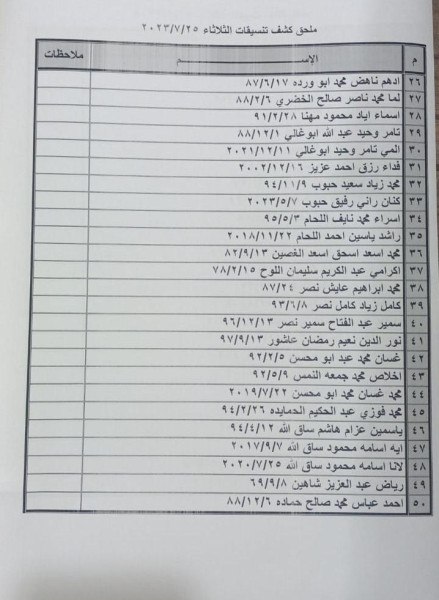 ملحق كشف تنسيقات الثلاثاء ٢٠٢٣/٧/٢٥
م الإســـــم ملاحظات
٢٦ ادهم ناهض محمد ابو ورده ٨٧/٦/١٧
٢٧ لما محمد ناصر صالح الخضري ٨٨/٢/٦
٢٨ اسماء اياد محمود مهنا ٩١/٢/٢٨
٢٩ تامر وحيد عبد الله ابوغالي ٨٨/١٢/١
٣٠ المي تامر وحيد ابوغالي ٢٠٢١/١٢/١١
٣١ فداء رزق احمد عزيز ٢٠٠٢/١٢/١٦
٣٢ محمد زياد سعيد حبوب ٩٤/١١/٩
٣٣ كنان راني رفيق حبوب ٢٠٢٣/٥/٧
٣٤ اسراء محمد نايف اللحام ٩٥/٥/٣
٣٥ راشد ياسين احمد اللحام ٢٠١٨/١١/٢٢
٣٦ محمد اسعد اسحق اسعد الغصين ٨٢/٩/١٣
٣٧ اكرامي عبد الكريم سليمان اللوح ٧٨/٢/١٥
٣٨ محمد ابراهيم عايش نصر ٨٧/٢٤
٣٩ كامل زياد كامل نصر ٩٣/٦/٨
٤٠ سمير عبد الفتاح سمير نصر ٩٦/١٢/١٣
٤١ نور الدين نعيم رمضان عاشور ٩٧/٩/١٣
٤٢ غسان محمد عبد ابو محسن ٩٢/٢/٥
٤٣ اخلاص محمد جمعه النمس ٩٢/٥/٩
٤٤ محمد غسان محمد ابو محسن ٢٠١٩/٧/٢٢
٤٥ محمد فوزي عبد الحكيم الحمايده ٩٤/٢/٢٦
٤٦ ياسمين عزام هاشم ساق الله ٩٤/٤/١٢
٤٧ ايه اسامه محمود ساق الله ٢٠١٧/٩/٧
٤٨ لانا اسامه محمود ساق الله ٢٠٢٠/٧/٢٥
٤٩ رياض عبد العزيز شاهين ٦٩/٩/٨
٥٠ احمد عباس محمد صالح حماده ٨٨/١٢/٦